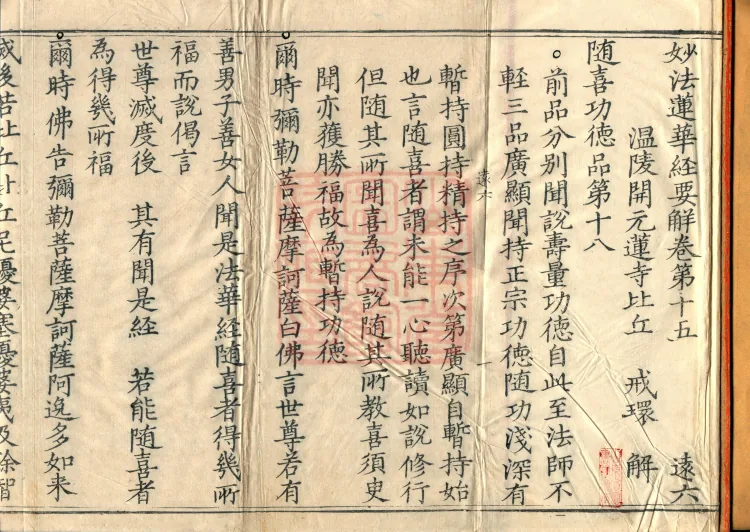 妙法蓮華經要解卷第十五 遠六
溫陵開元蓮寺比丘 戒環 解
随喜功德品第十八
前品分别聞說壽量功德自此至法師不
輕三品廣顯聞持正宗功德随功淺深有
遠六 一
暫持圓持精持之序次第廣顯自暫持始
也言随喜者謂未能一心聽讀如說修行
但随其所聞喜為人說随其所教喜須臾
聞亦獲勝福故為暫持功德
爾時彌勒菩薩摩訶薩白佛言世尊若有
善男子善女人聞是法華經随喜者得幾所
福而說偈言
世尊滅度後 其有聞是經 若能随喜者
為得幾所福
爾時佛告彌勒菩薩摩訶薩阿逸多如来
滅後若比丘比丘尼優婆塞優婆夷及餘智